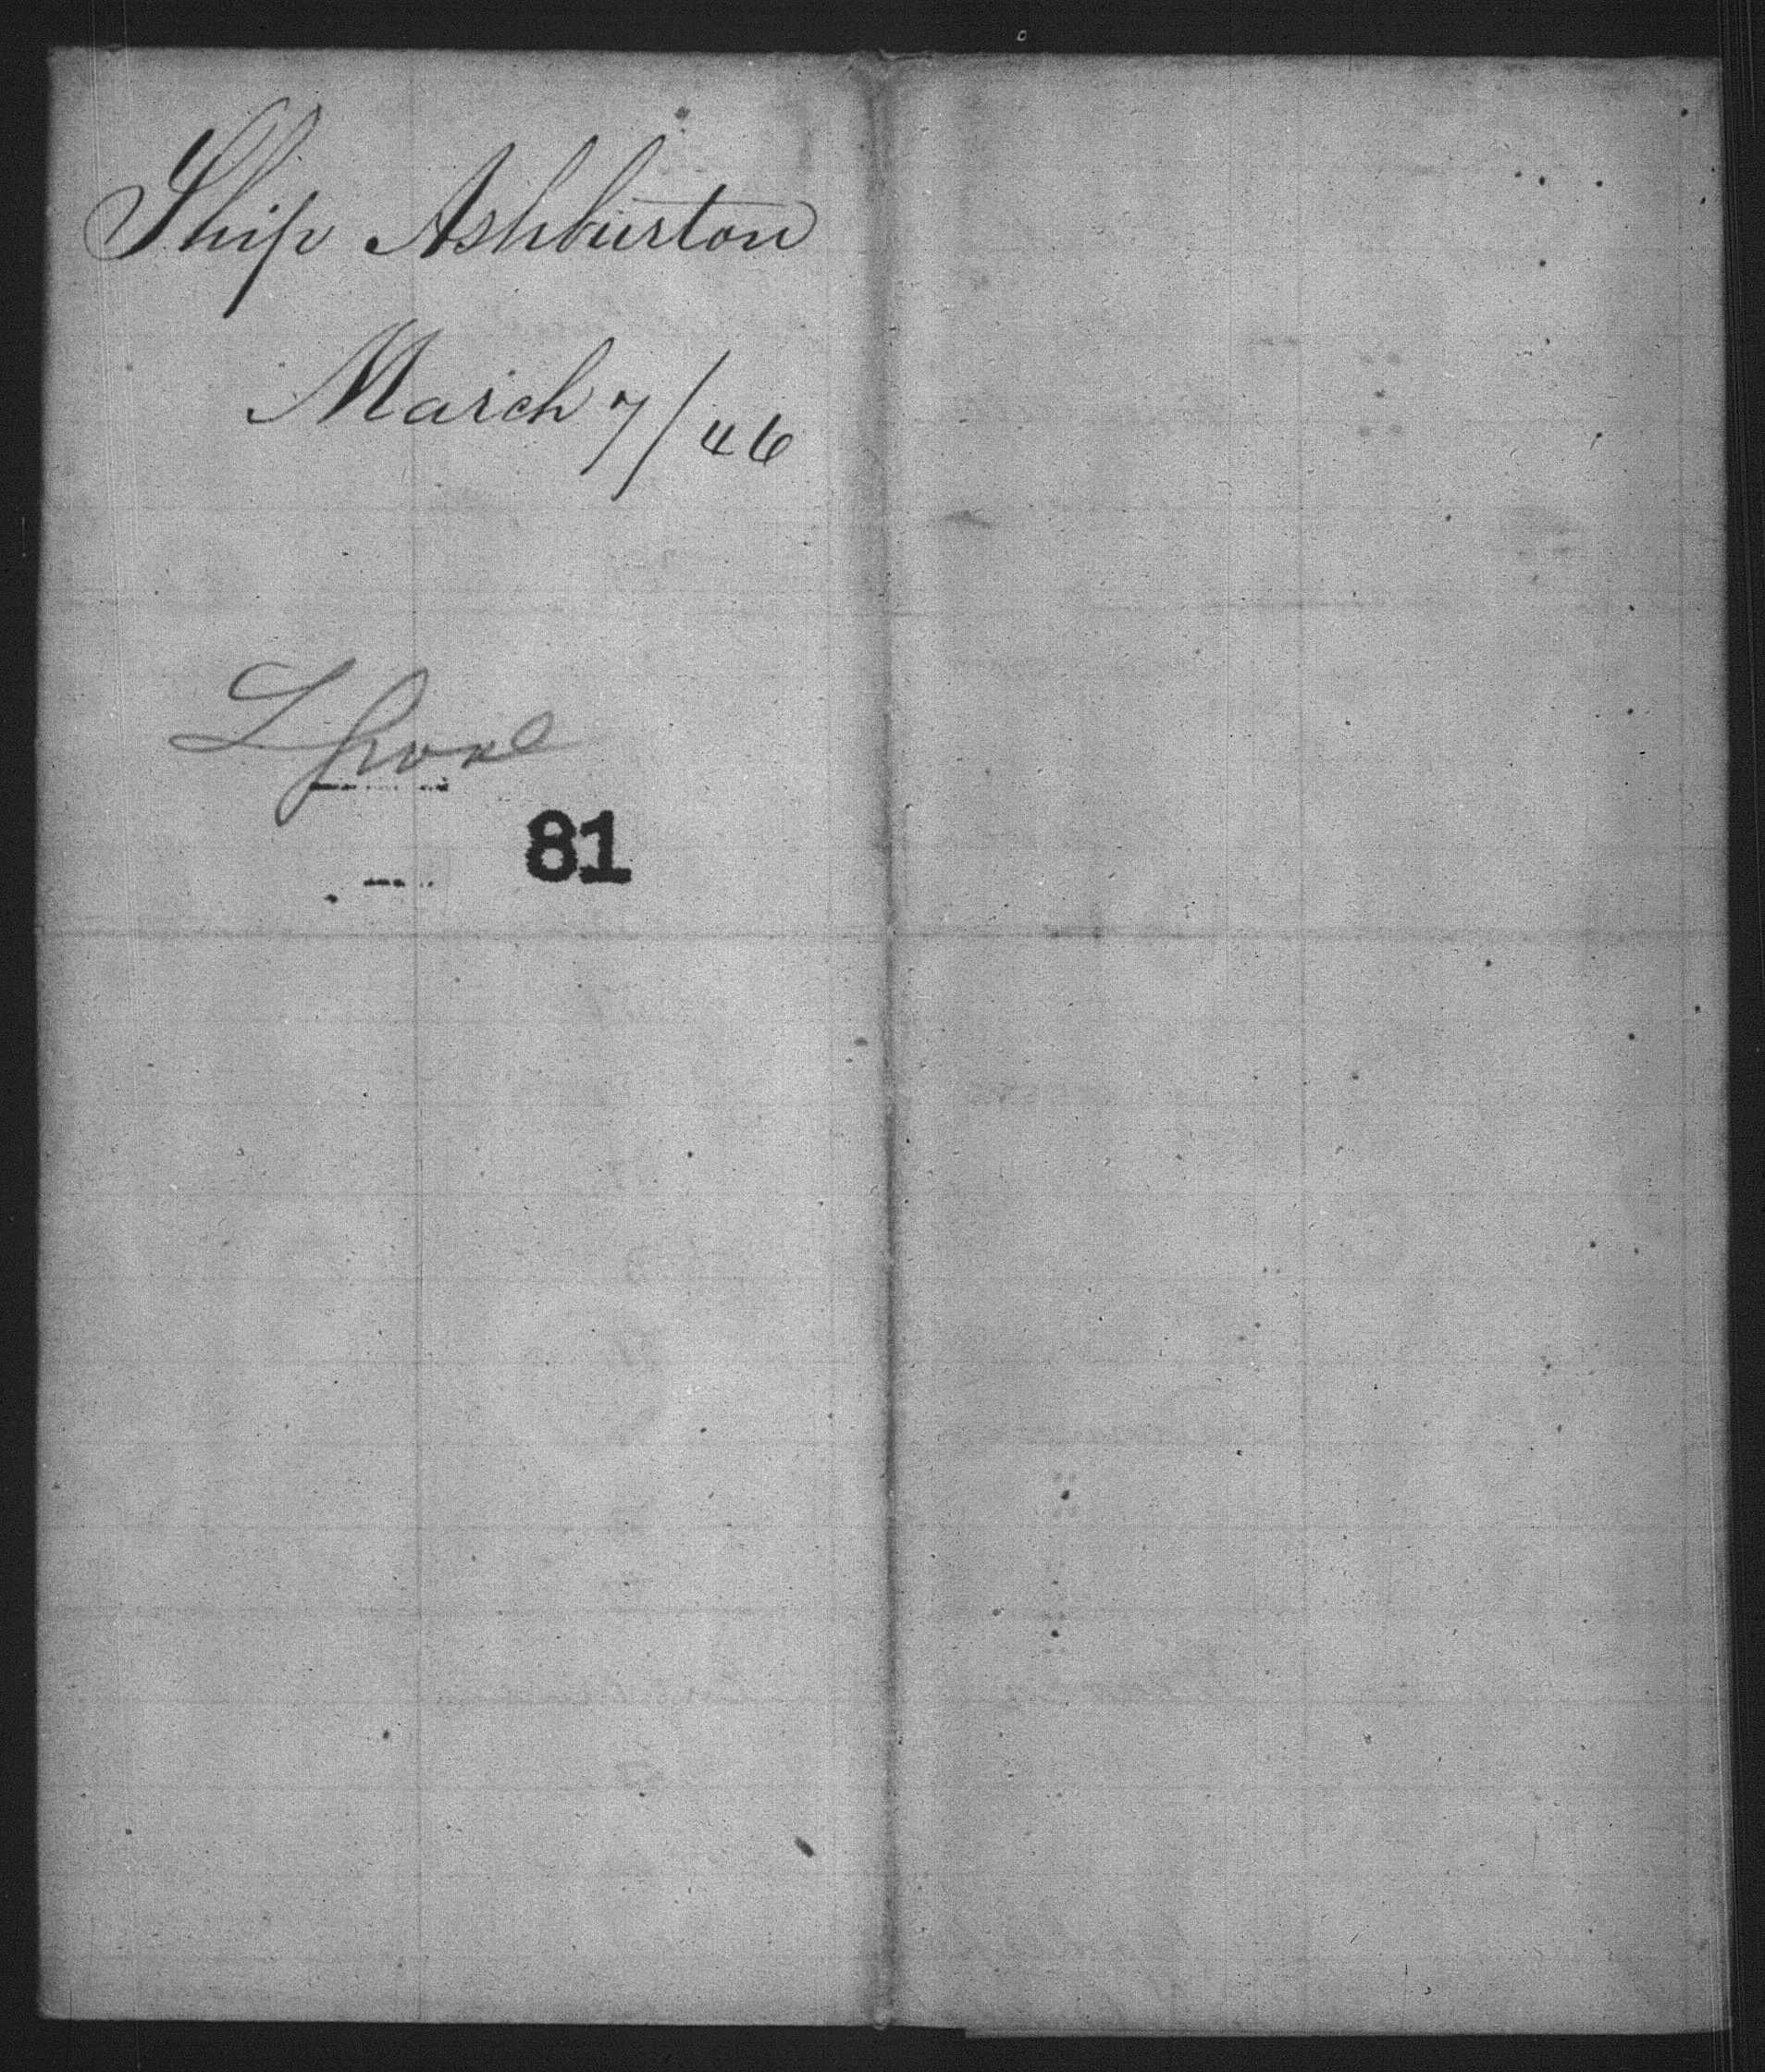 Ship Ashburton
March 7/46
Lpool
81